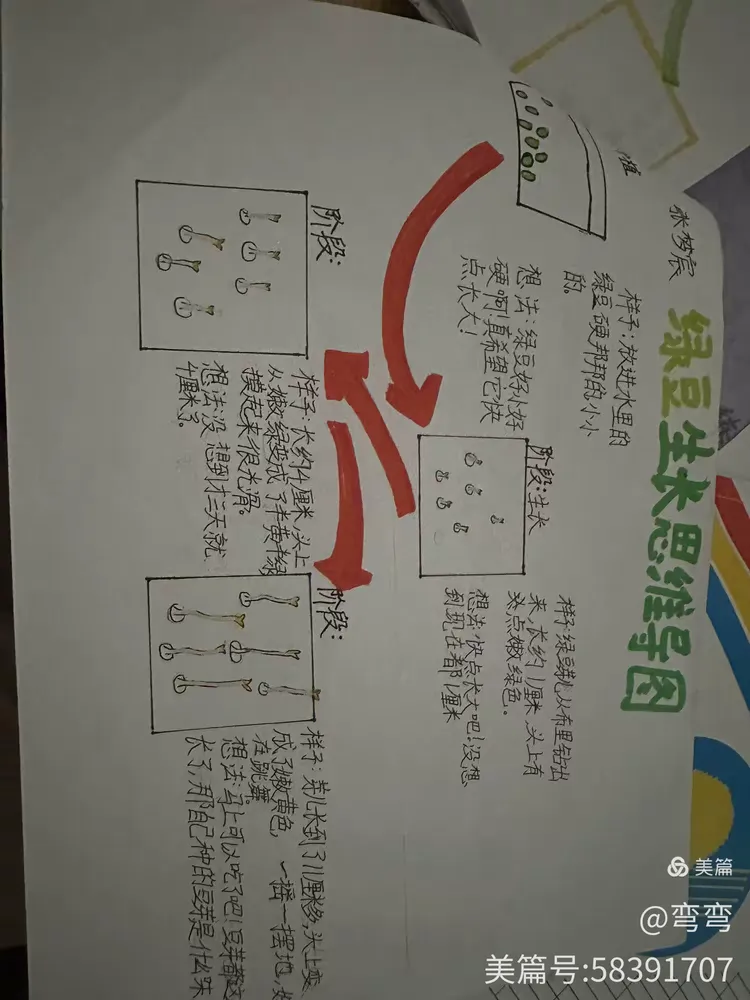 绿豆生长思维导图
张梦宸
样子：放进水里的
绿豆硬邦邦的小小
的。
想法：绿豆好小好
硬啊！真希望它快
点长大！
阶段：生长
样子：绿豆芽儿从布里钻出
来，长约1厘米，头上有
点嫩绿色。
想法：快点长大吧！没想
到现在都1厘米
阶段：
样子：长约4厘米，头上
从嫩绿变成了半黄半绿
摸起来很光滑。
想法：没想到才三天就
4厘米了。
阶段：
样子：芽儿长到了11厘米多，头上变
成了嫩黄色，一摇一摆地，
在跳舞。
想法：马上可以吃了吧！豆芽都这
长了，那自己种的豆芽是什么味
美篇
@弯弯
美篇号:58391707